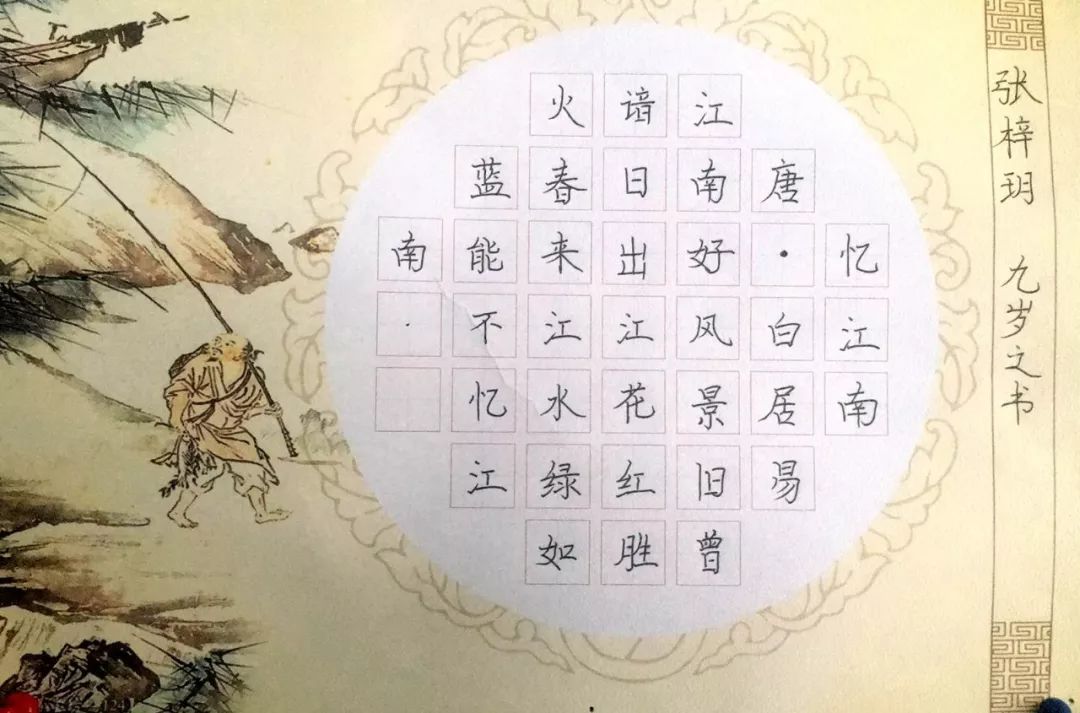 忆江南
唐·白居易
江南好风景旧曾
谙日出江花红胜
火春来江水绿如
蓝能不忆江
南·
张梓玥 九岁之书